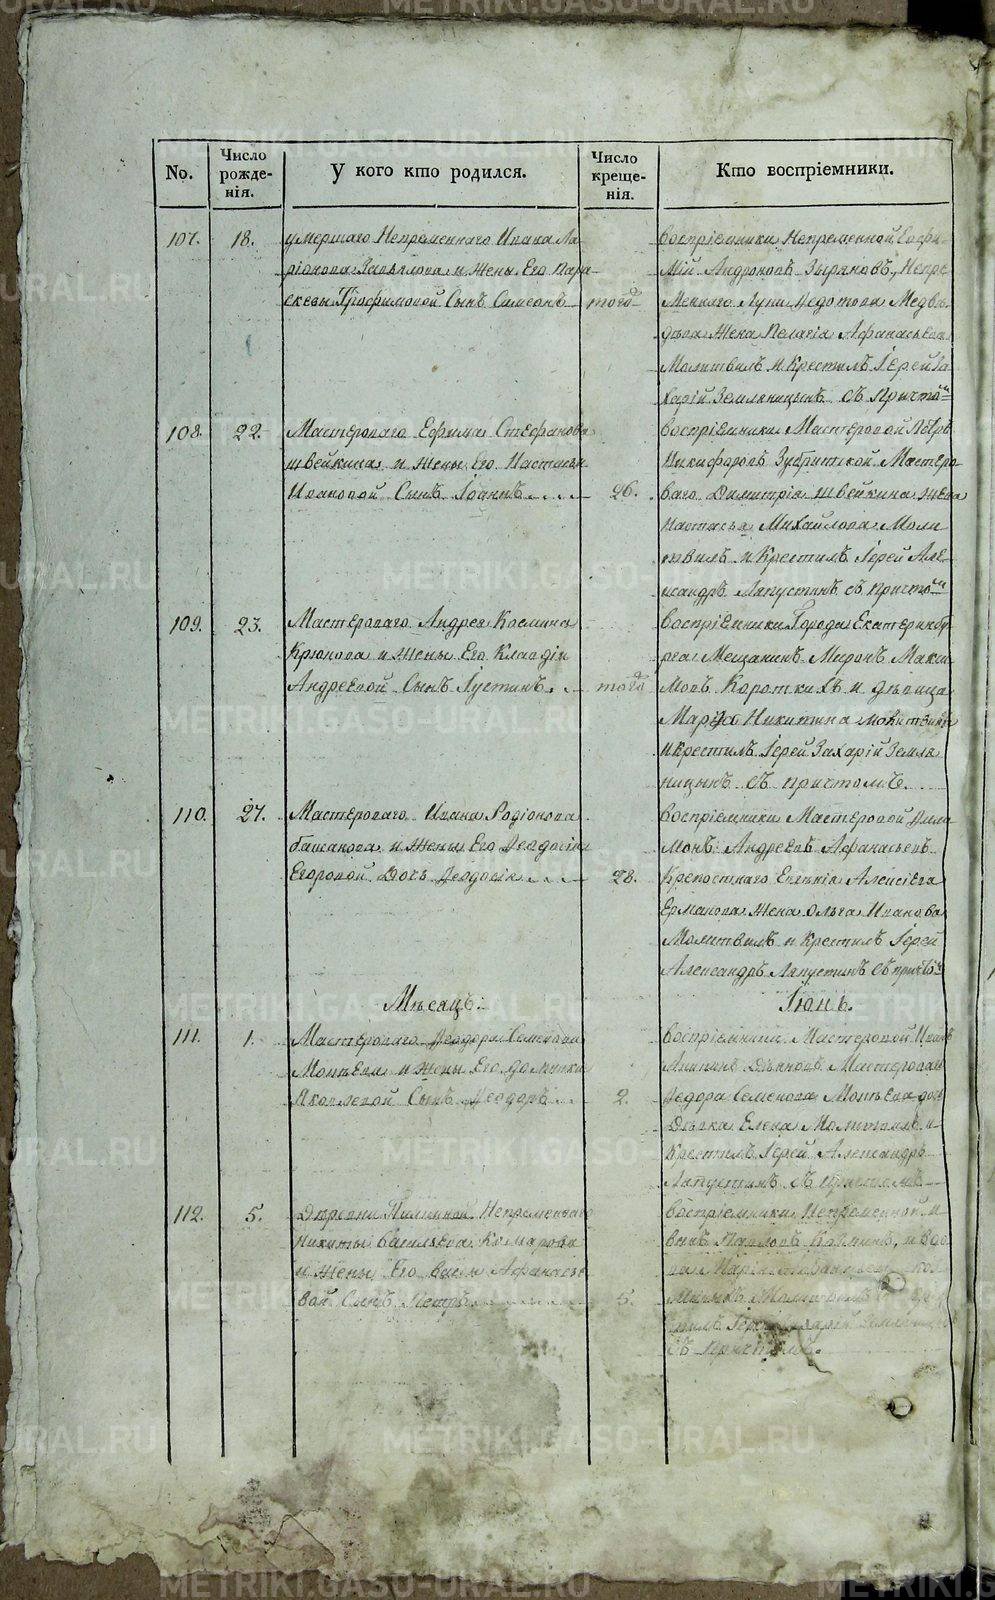 No.
Число рожде-
нія.
У кого кто родился.
Число креще-
нія.
Кто воспріемники.
107.
18.
умершаго Непременнаго Ивана Ла-
ріонова и жены Его Пара-
скевы Трофимовой Сынъ Самсонъ
того
воспріемники Непременной
Андроновъ Зыряновъ, Непре-
меннаго Луки Федотова Медвѣ-
дева жена Пелагія Афанасьева
Молитвилъ и Крестилъ Іерей За-
харій Земляницынъ съ Причто
108.
22.
Мастероваго Ефима Стефанова
швейкина и жены Его Настасьи
Ивановой Сынъ Іоаннъ
26.
воспріемники Мастеровой Петръ
Никифоровъ Зубритской Мастеро-
ваго Димитрія швейкина жена
Настасья Михайлова Моли-
твилъ и Крестилъ Іерей Але-
ксандръ Ляпустинъ съ причто
109.
23.
Мастероваго Андрея Козмина
Крюкова и жены Его Клавдіи
Андреевой Сынъ Іустинъ
того
воспріемники Города Екатеринбу-
рга Мещанинъ Миронъ Макси-
мовъ Короткихъ и девица
Марья Никитина молитвилъ
и крестилъ Іерей Захарій Земля-
ницынъ съ причтомъ.
110.
27.
Мастероваго Ивана Родіонова
башакова и жены Его Феодосіи
Егоровой Дочь Феодосія
28.
воспріемники Мастеровой Фили-
монъ Андреевъ Афанасьевъ
Крепостнаго Евгенія Алексіева
Ермакова жена Ольга Иванова
Молитвилъ и Крестилъ Іерей
Александръ Ляпустинъ съ причто
Мѣсяцъ:
Іюнь.
111.
1.
Мастероваго Феодора Семенова
Мокѣева и жены Его Домники
Яковлевой Сынъ Феодоръ
2.
воспріемники Мастеровой Иванъ
Мастероваго
Федора Семенова Мокѣева дочь
Девка Елена Молитвилъ и
Крестилъ Іерей Александръ
Ляпустинъ съ Причтомъ
112.
5.
Деревни Непременнаго
Никиты Васильева Комарова
и жены Его Васы Афанасье-
вой Сынъ Петръ
5.
воспріемники Непременной И-
ванъ Павловъ
Марія
Молитвилъ
Іерей Захарій
съ Причтомъ.
METRIKI.GASO-URAL.RU